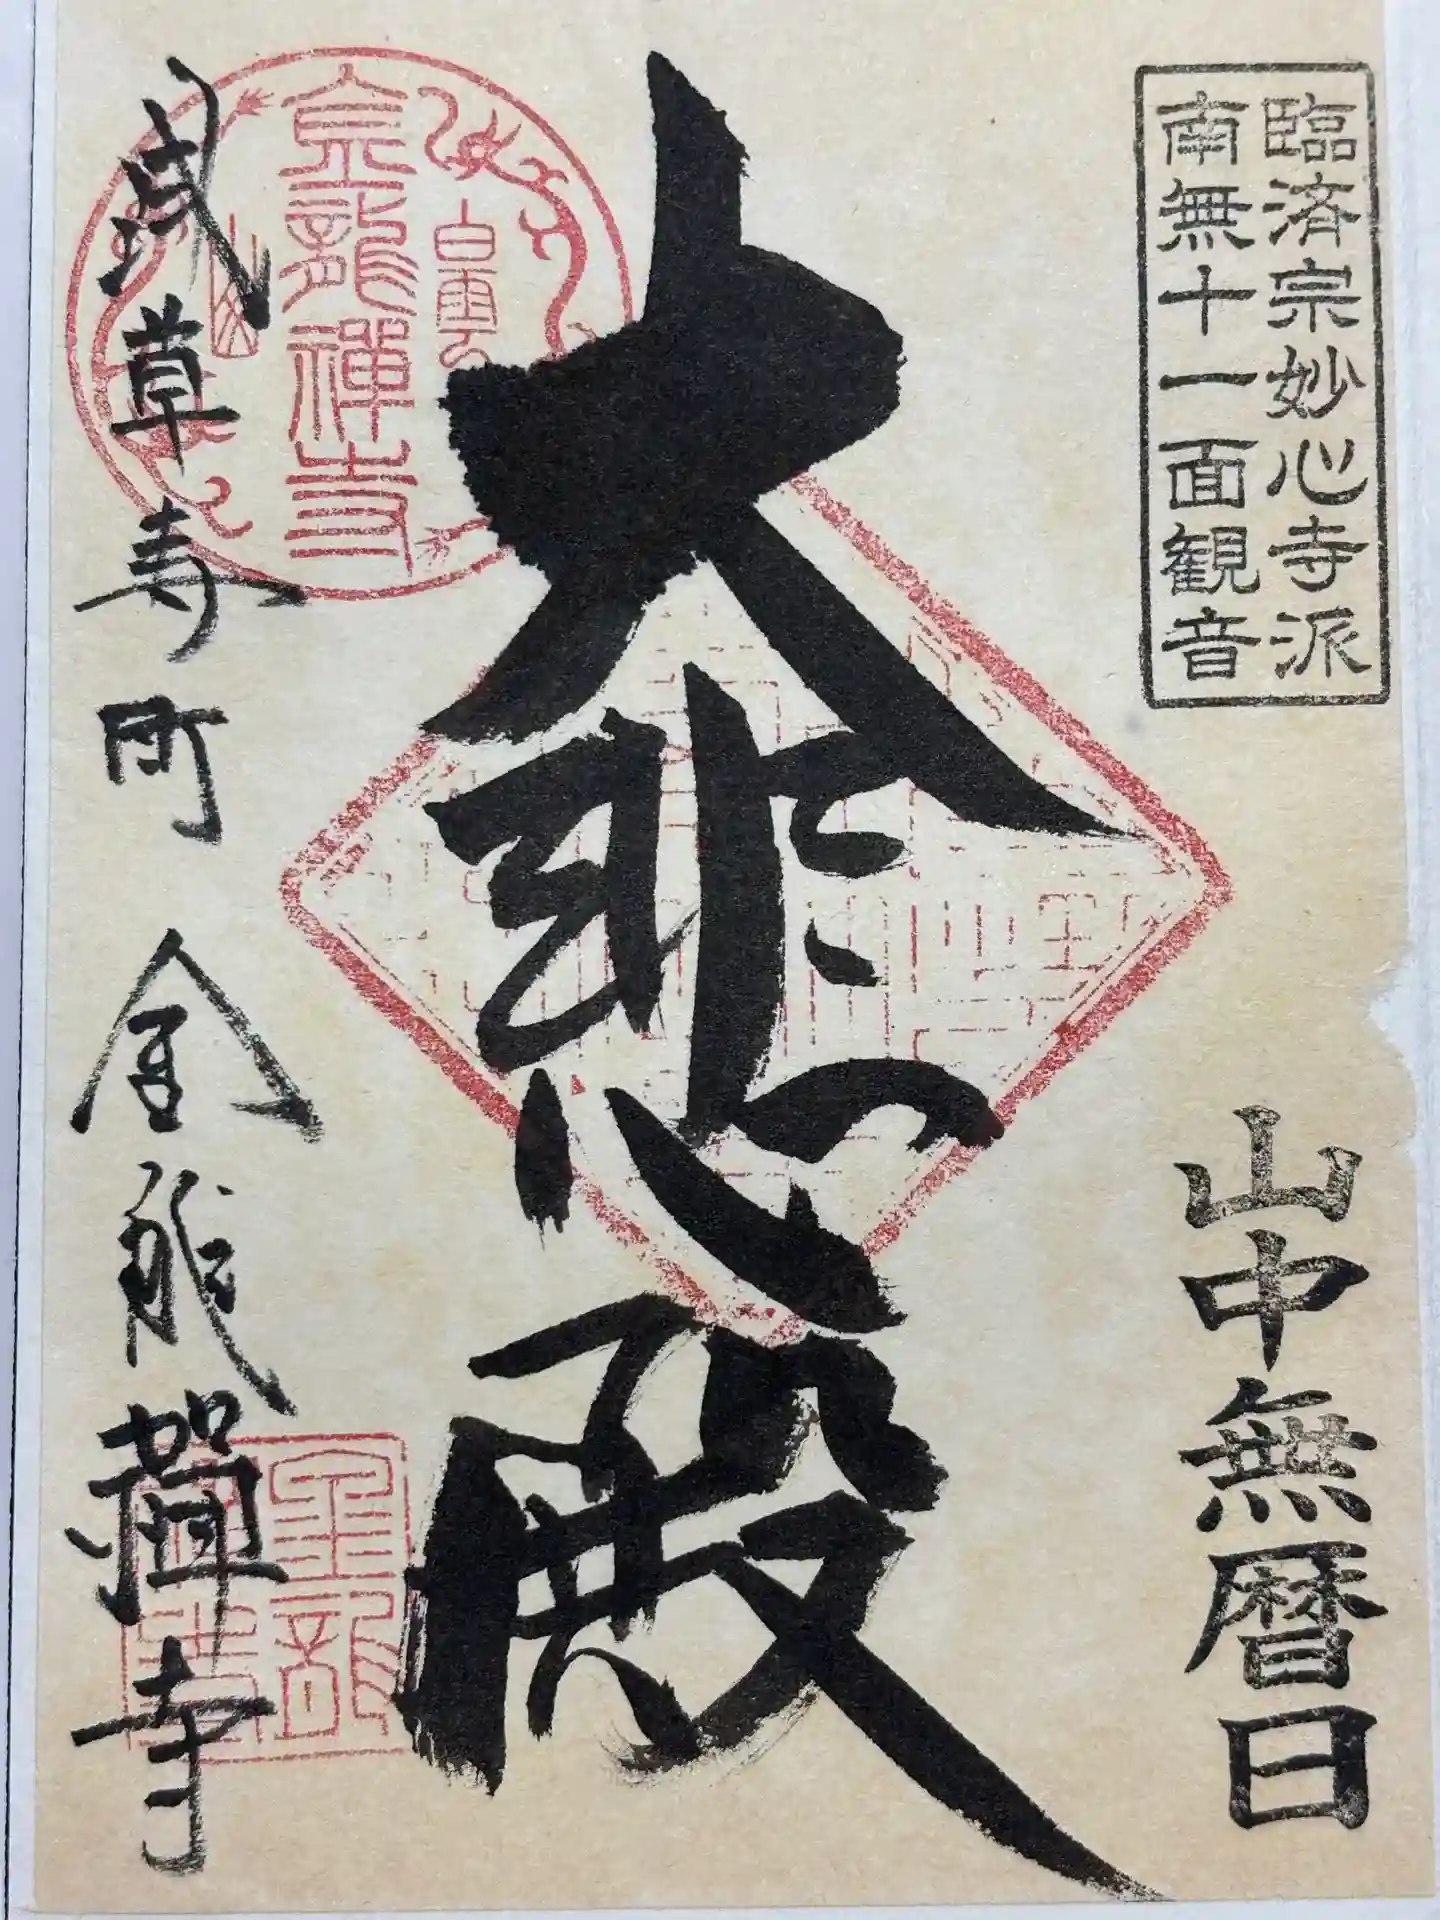 臨済宗妙心寺派
南無十一面観音
山中無暦日
大悲殿
白雲山
金龍禪寺
浅草寿町 金龍禅寺
金龍